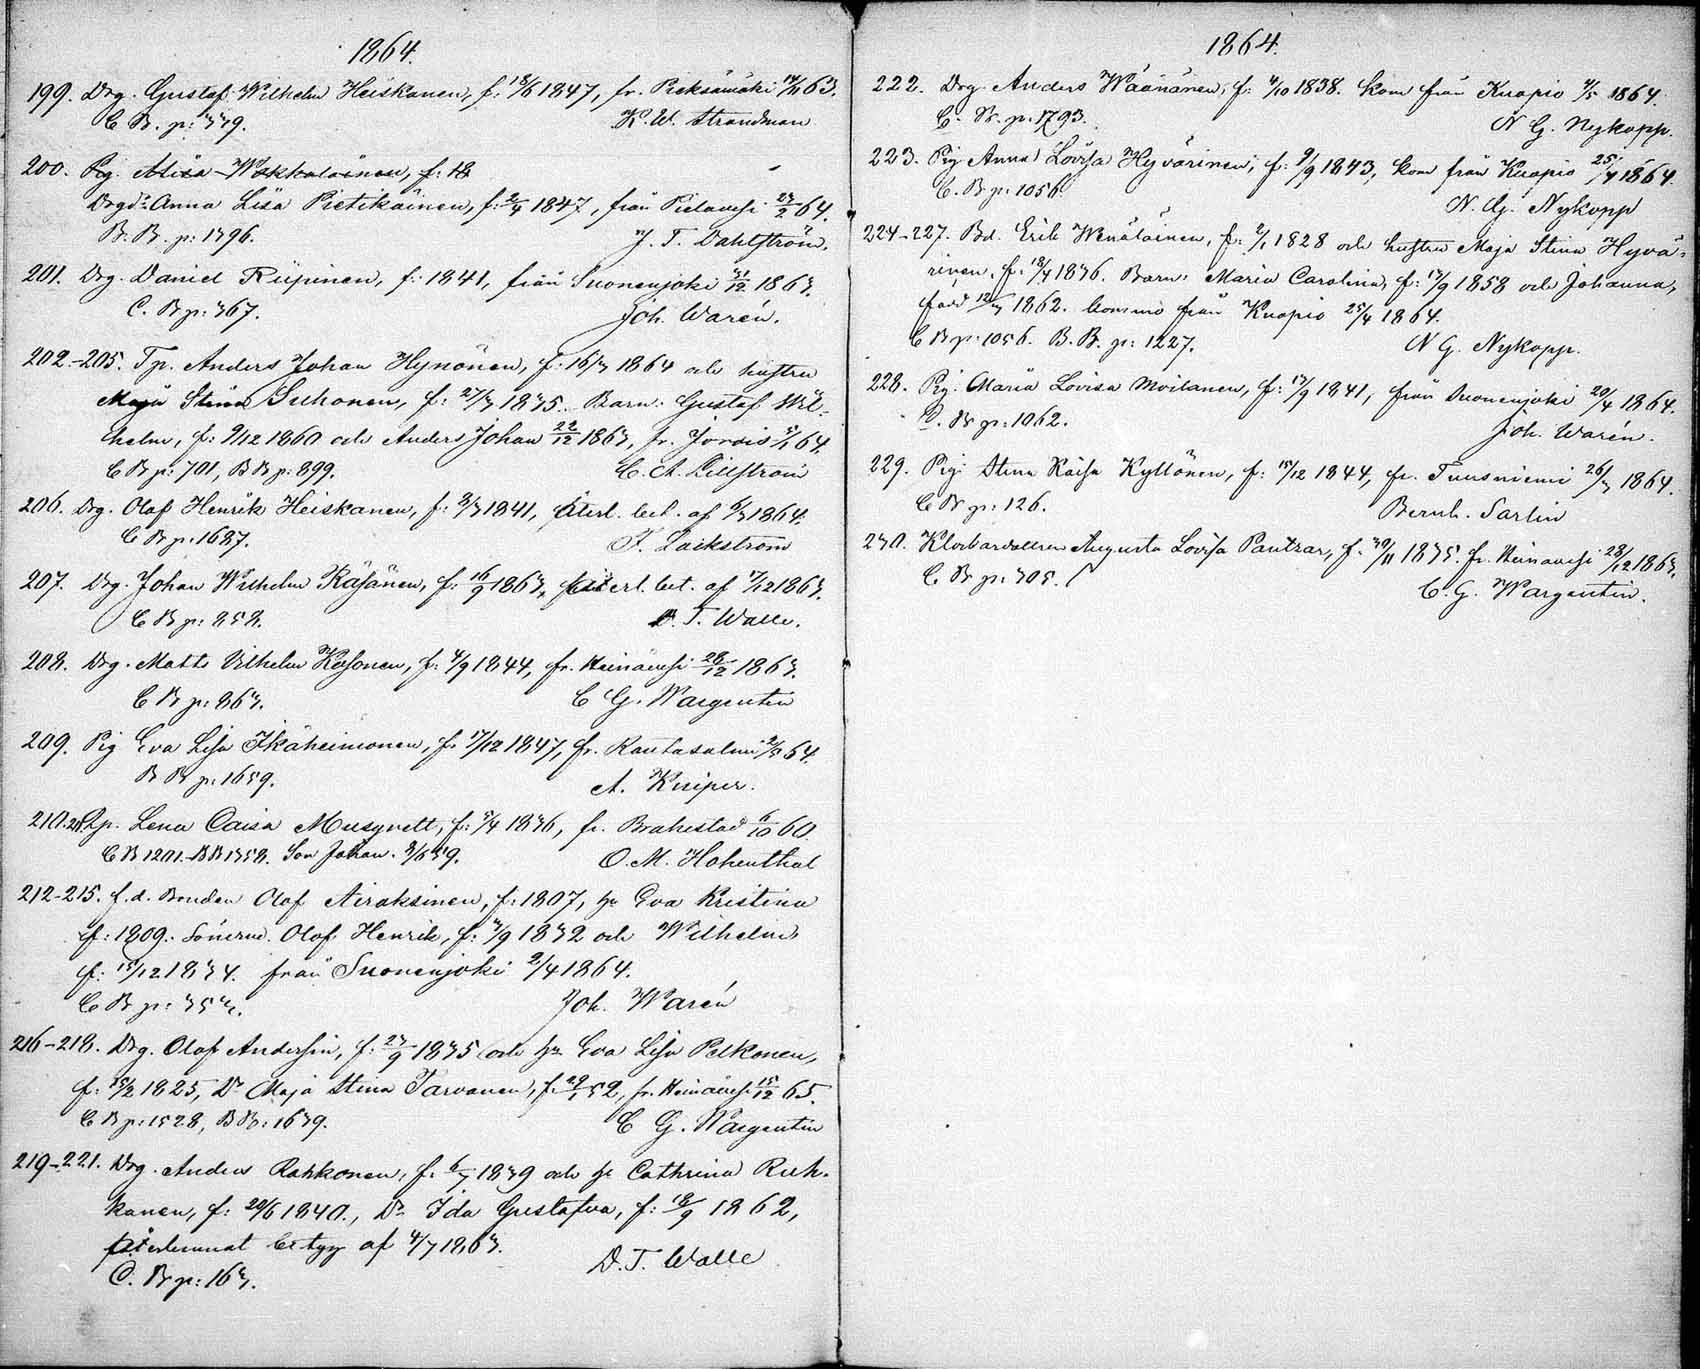 1864.
199. Drg. Gustaf Wilhelm Heiskanen, f: 18/6 1847, fr. Pieksämäki 14/11 63.
C B. p: 339. K. W. Strandman
200. Pig. Wokkolainen, f: 18
Drgdr Anna Lisa Pietikäinen, f: 2/4 1847, från Pielavesi 27/2 64.
B. B. p: 1396. J. T. Dahlström.
201. Drg. Daniel Riipinen, f: 1841, från Suonenjoki 31/12 1863.
C. B p: 367. Joh. Warén.
202-205. Tp. Anders Johan Hynönen, f: 16/3 1864 och hustru
Maja Stina Suhonen, f: 27/3 1835. Barn: Gustaf Wil-
helm, f: 9/12 1860 och Anders Johan 22/12 1863, fr. Jorois 64.
C B p: 701, B B p: 899. C. A. Lillström
206. Drg. Olof Henrik Heiskanen, f: 8/3 1841, återl. bet. af 6/3 1864.
C B p: 1687. F. Lackström
207. Drg. Johan Wilhelm Räsänen, f: 16/9 1863, återl. bet. af 17/12 1863.
C B p: 858. D. T. Walle.
208. Drg. Matts Vilhelm Kosonen, f: 4/9 1844, fr. Heinävesi 28/12 1863.
C B p: 863. C G. Wargentin
209. Pig Eva Lisa Ikäheimonen, f: 17/12 1847, fr. Rantasalmi 64.
B B p: 1659. A. Kniper.
210.211. Lena Caisa Musgrett, f: 3/4 1836, fr. Brahestad 6/10 60.
C B 1201. BB 1358. Son Johan. 8/6 59. O. M. Hohenthal
212-215. f.d. Bonden Olof Airaksinen, f: 1807, h. Eva Kristina
f: 1809. Sönerna. Olof Henrik, f: 3/9 1832 och Wilhelm,
f: 15/12 1834. från Suonenjoki 2/4 1864.
C B p: 353. Joh. Warén
216-218. Drg. Olof Andersin, f: 23/9 1835 och h. Eva Lisa Pelkonen,
f: 15/2 1825, Dr Maja Stina Tarvanen, f: 29/1 52, fr. Heinävesi 15/12 63.
C B p: 1528, B B: 1639. C G. Wargentin
219-221. Drg. Anders Rahkonen, f: 6/7 1839 och h. Cathrina Ruh-
kanen, f: 20/6 1840., Dr Ida Gustafva, f: 18/9 1862,
återlemnat betyg af 4/7 1863. D. T. Walle
C. B p: 163.
1864.
222. Drg Anders Wäänänen, f: 4/10 1838. kom från Kuopio 4/5 1864.
C. B. p: 1793. N G. Nykopp.
223. Pig Anna Lovisa Hyvärinen, f: 9/9 1843, kom från Kuopio 25/4 1864.
C. B p: 1056. N. G. Nykopp
224-227. Bd. Erik Wenäläinen, f: 2/1 1828 och hustru Maja Stina Hyvä-
rinen, f: 18/4 1836. Barn: Maria Carolina, f: 17/9 1858 och Johanna,
född 12/3 1862. kommo från Kuopio 25/4 1864.
C B p: 1056. B. B. p: 1227. N G. Nykopp.
228. Pig: Maria Lovisa Moilanen, f: 17/9 1841, från Suonenjoki 20/4 1864.
B p: 1062. Joh. Warén.
229. Pig: Stina Kaisa Kyllönen, f: 15/12 1844, fr. Tuusniemi 26/3 1864.
C B p: 126. Bernh. Sarlin
230. Klockardottren Augusta Lovisa Pantzar, f: 30/11 1835. fr. Heinävesi 28/12 1863.
C. B p: 305. C. G. Wargentin.